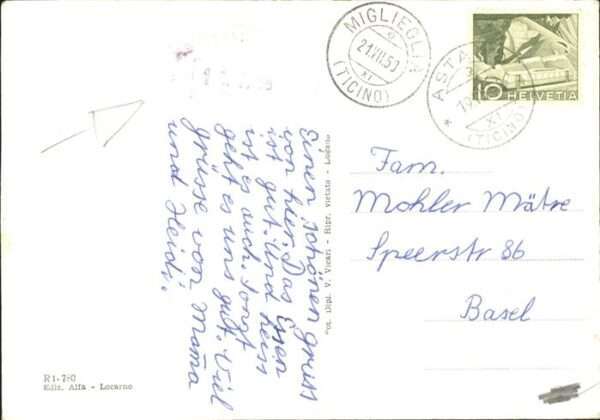 MIGLIEGLIA
21.VII.50
XI
(TICINO)
ASTA
19
XI
(TICINO)
10 HELVETIA
Einen schönen gruss
von hier. Das Essen
ist gut. Und heiss
ist es auch. Sonst
geht es uns gut. Viel
grüsse von Mama
und Heidi.
V. Vicari - Ripr. vietata - Locarno
Fam.
Mohler Mätre
Speerstr 86
Basel
R 1-780
Ediz. Alfa - Locarno